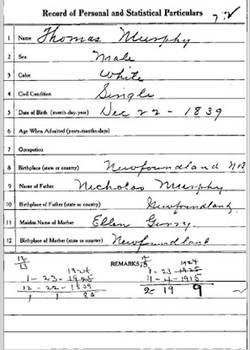 Record of Personal and Statistical Particulars
1 Name Thomas Murphy
2 Sex Male
3 Color White
4 Civil Condition Single
5 Date of Birth (month-day-year) Dec 22 - 1839
6 Age When Admitted (years-months-days)
7 Occupation
8 Birthplace (state or country) Newfoundland
9 Name of Father Nicholas Murphy
10 Birthplace of Father (state or country) Newfoundland
11 Maiden Name of Mother Ellen
12 Birthplace of Mother (state or country) Newfoundland
REMARKS
1924 1924
1-23-1925 1-23-1925
12-22-1839 11-4-1915
2-19 9